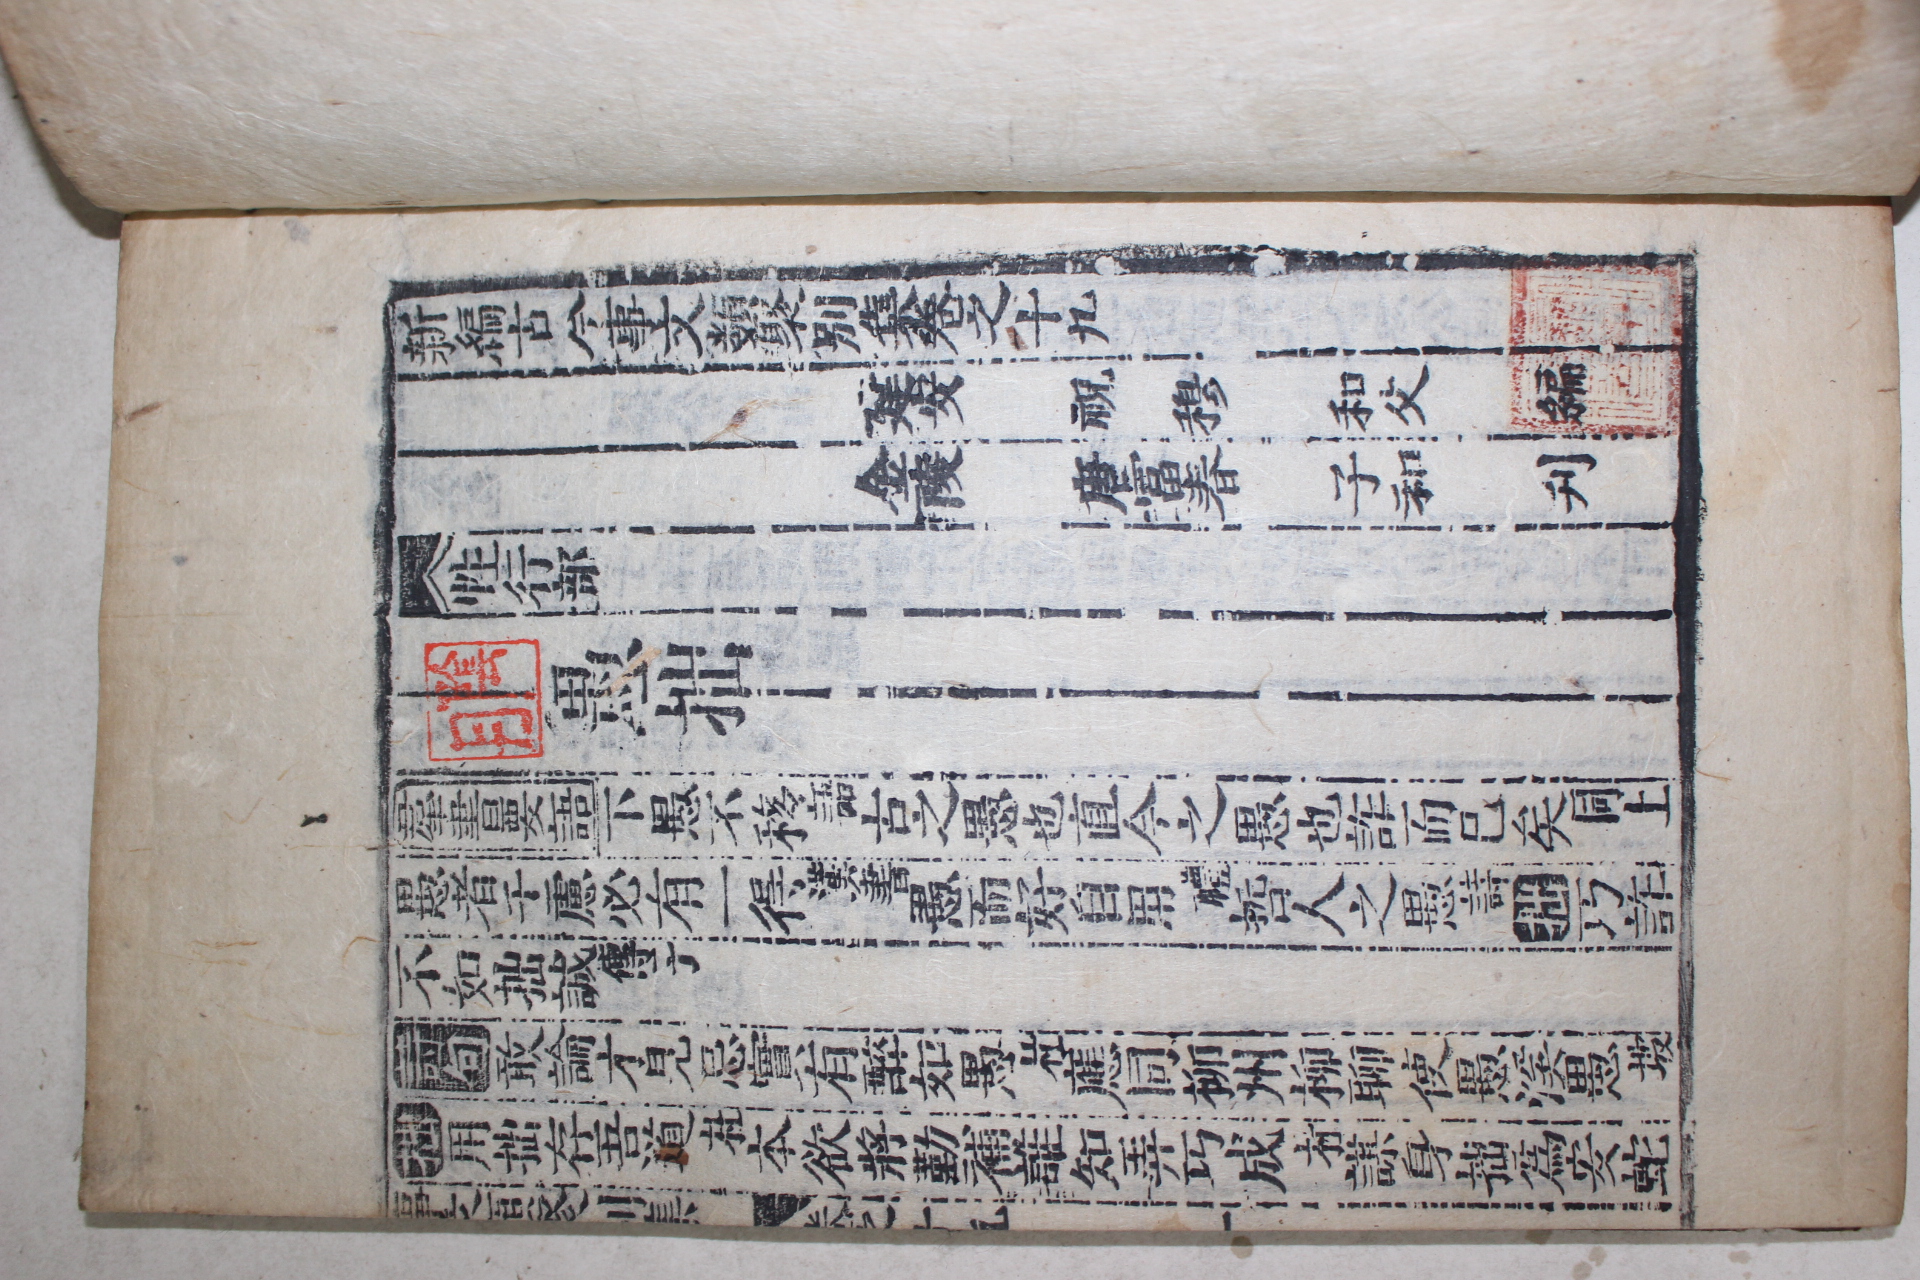 新編古今事文類聚別集卷之十九
建安 祝 穆 和父 編
金陵 唐富春 子和 刊
性行部
愚拙
羣書要語下愚不移語古之愚也直今之愚也詐而已矣同上
愚者千慮必有一得漢書愚而好自用禮哲人之愚詩拙巧詐
不如拙誠傳子
詩句敢論才見忌實有醉如愚杜應同柳州柳聊使愚溪愚坡
拙用拙存吾道杜本欲將勤補誰知弄巧成謀身拙為安蛇
卷之十九 一